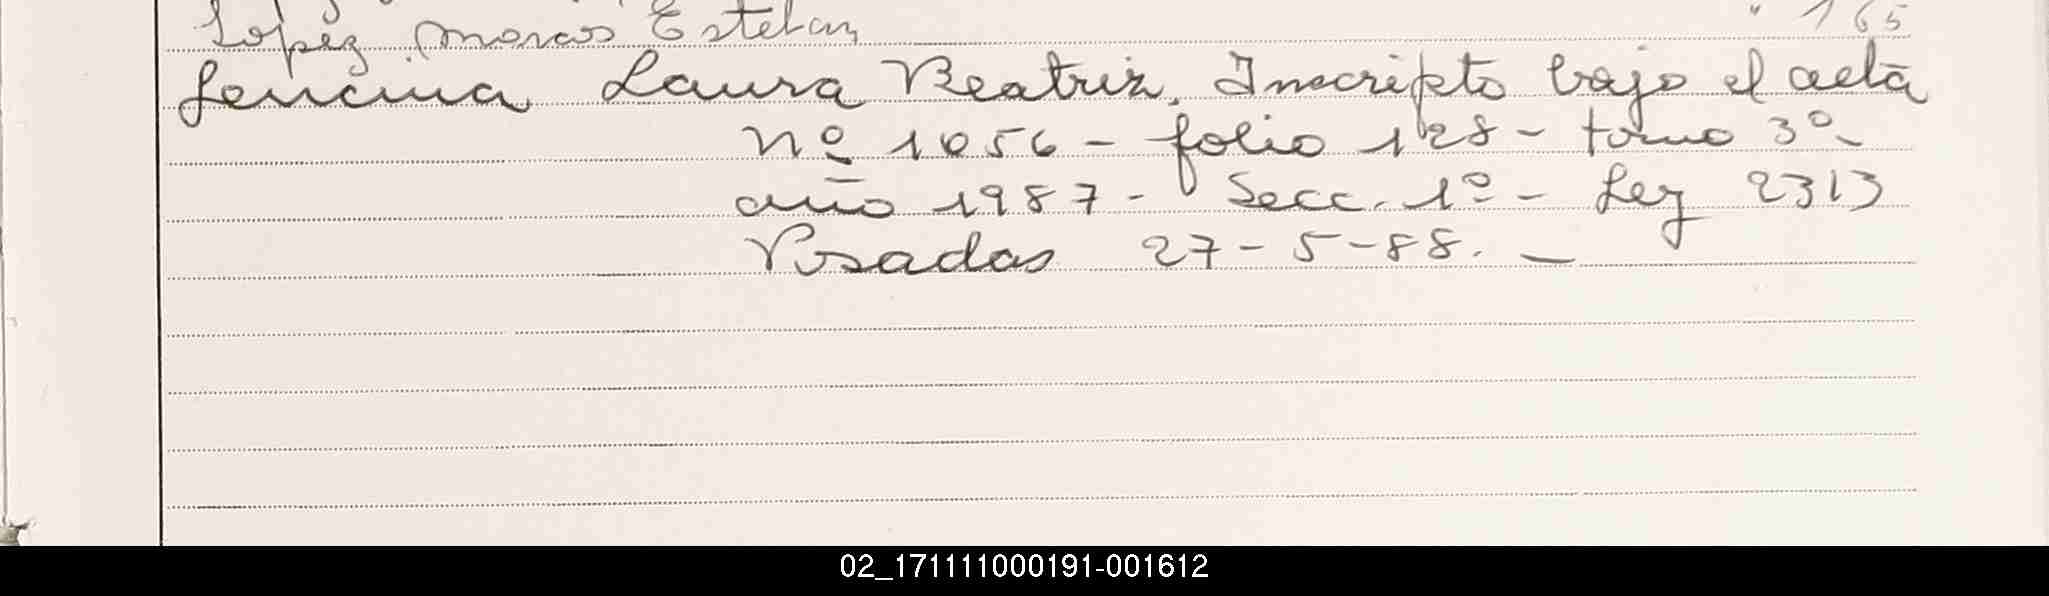 Lopez Marcos Esteban " 165
Lencina Laura Beatriz. Inscripto bajo el acta
Nº 1056 - folio 128 - tomo 3º -
año 1987 - Secc. 1º - Ley 2313
Posadas 27-5-88. —
02_171111000191-001612